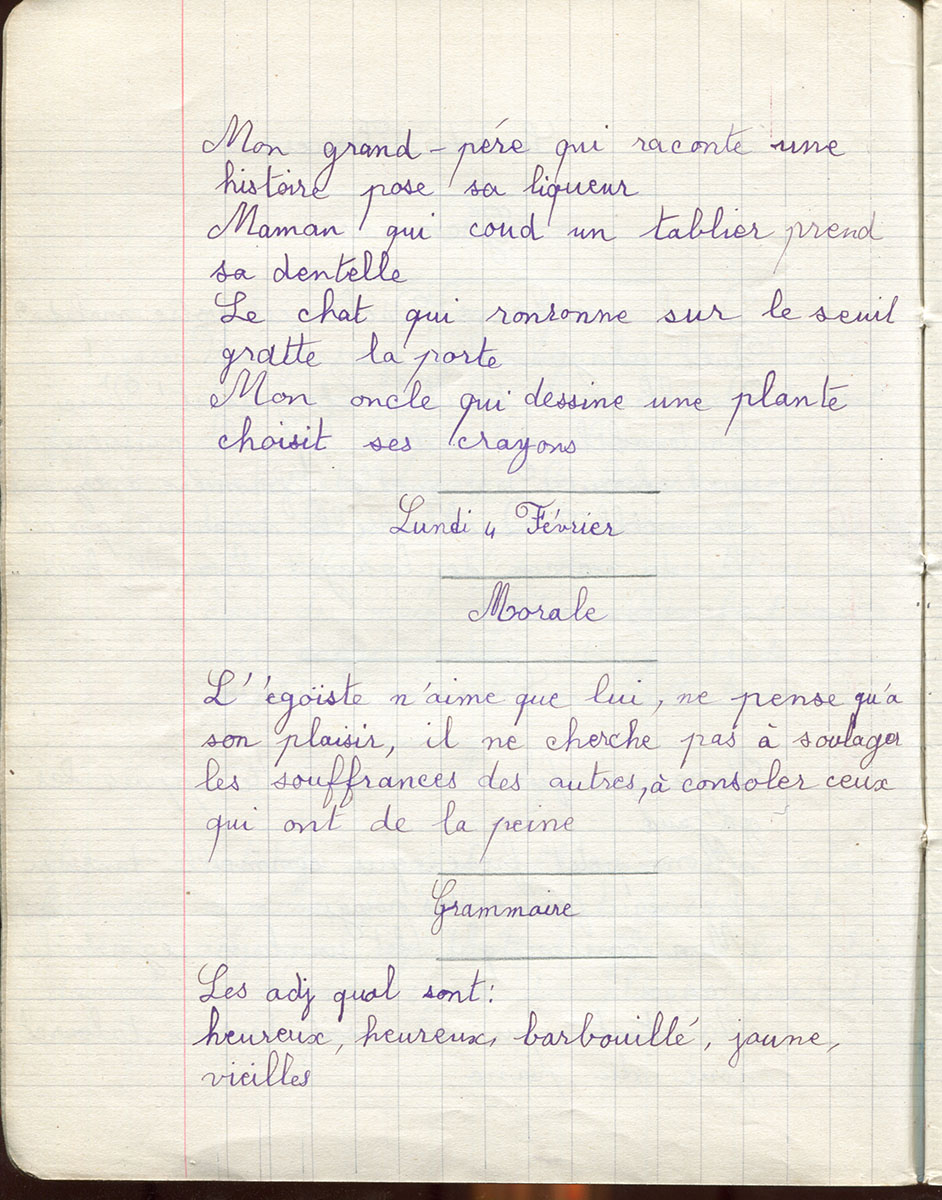 Mon grand-pére qui raconte une
histoire pose sa liqueur
Maman qui coud un tablier prend
sa dentelle
Le chat qui ronronne sur le seuil
gratte la porte
Mon oncle qui dessine une plante
choisit ses crayons
Lundi 4 Février
Morale
L''égoïste n'aime que lui, ne pense qu'à
son plaisir, il ne cherche pas à soulager
les souffrances des autres, à consoler ceux
qui ont de la peine
Grammaire
Les adj qual sont:
heureux, heureux, barbouillé, jaune,
vieilles